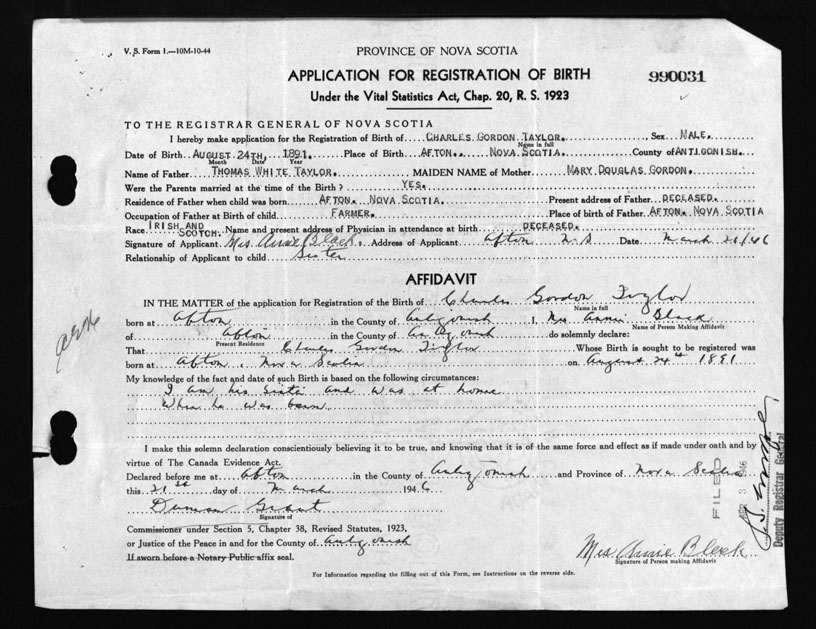 V. S. Form 1.—10M-10-44
PROVINCE OF NOVA SCOTIA
APPLICATION FOR REGISTRATION OF BIRTH
990031
Under the Vital Statistics Act, Chap. 20, R. S. 1923
TO THE REGISTRAR GENERAL OF NOVA SCOTIA
I hereby make application for the Registration of Birth of CHARLES GORDON TAYLOR. Sex MALE.
Name in full
Date of Birth AUGUST 24TH, 1891. Place of Birth AFTON. NOVA SCOTIA. County of ANTIGONISH.
Month Date Year
Name of Father THOMAS WHITE TAYLOR. MAIDEN NAME of Mother MARY DOUGLAS GORDON.
Were the Parents married at the time of the Birth? YES.
Residence of Father when child was born AFTON. NOVA SCOTIA. Present address of Father DECEASED.
Occupation of Father at Birth of child FARMER. Place of birth of Father AFTON. NOVA SCOTIA
Race IRISH AND SCOTCH. Name and present address of Physician in attendance at birth DECEASED.
Signature of Applicant Mrs Annie Black, Address of Applicant Afton N S Date March 21/46
Relationship of Applicant to child Sister
AFFIDAVIT
IN THE MATTER of the application for Registration of the Birth of Charles Gordon Taylor
Name in full
born at Afton in the County of Antigonish I, Mrs Annie Black
Name of Person Making Affidavit
of Afton in the County of Antigonish do solemnly declare:
Present Residence
That Charles Gordon Taylor Whose Birth is sought to be registered was
born at Afton, Nova Scotia on August 24th 1891
My knowledge of the fact and date of such Birth is based on the following circumstances:
I am his sister and was at home
When he was born
I make this solemn declaration conscientiously believing it to be true, and knowing that it is of the same force and effect as if made under oath and by
virtue of The Canada Evidence Act.
Declared before me at Afton in the County of Antigonish and Province of Nova Scotia
this 21st day of March 1946
Duncan Grant
Signature of
Commissioner under Section 5, Chapter 38, Revised Statutes, 1923,
or Justice of the Peace in and for the County of Antigonish
If sworn before a Notary Public affix seal.
Mrs Annie Black
Signature of Person making Affidavit
For Information regarding the filling out of this Form, see Instructions on the reverse side.
FILED
Deputy Registrar General